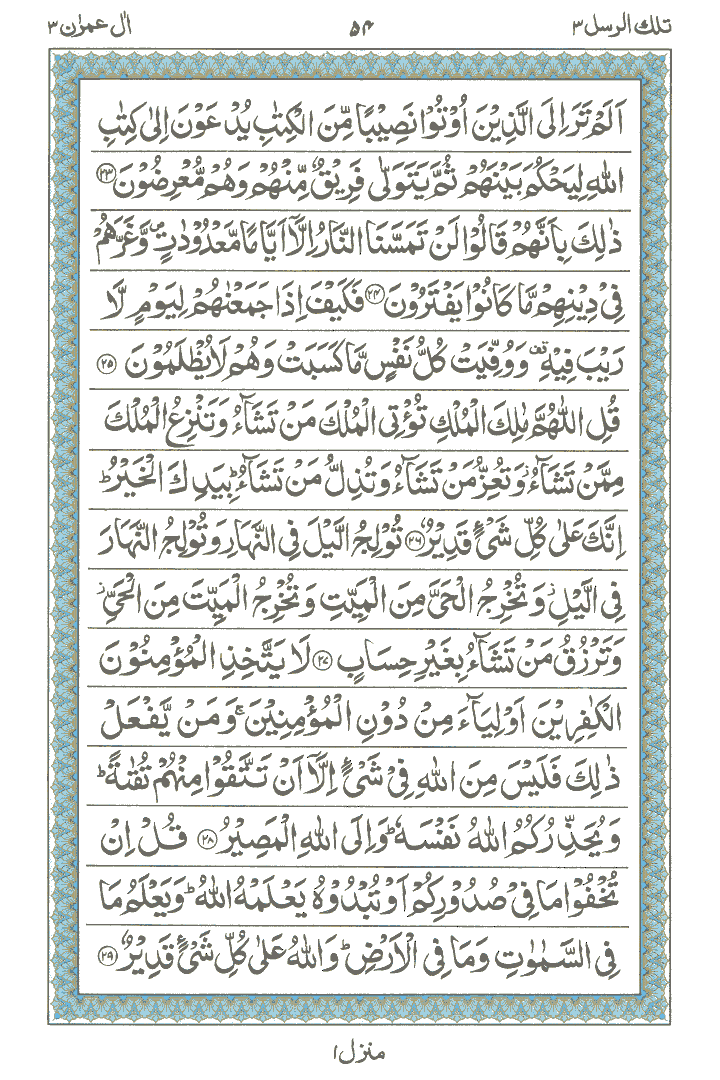 تلك الرسل ٣
۵۴
اٰل عمرٰن ٣
اَلَمْ تَرَ اِلَى الَّذِيْنَ اُوْتُوْا نَصِيْبًا مِّنَ الْكِتٰبِ يُدْعَوْنَ اِلٰى كِتٰبِ
اللّٰهِ لِيَحْكُمَ بَيْنَهُمْ ثُمَّ يَتَوَلّٰى فَرِيْقٌ مِّنْهُمْ وَهُمْ مُّعْرِضُوْنَ ﴿۲۳﴾
ذٰلِكَ بِاَنَّهُمْ قَالُوْا لَنْ تَمَسَّنَا النَّارُ اِلَّاۤ اَيَّامًا مَّعْدُوْدٰتٍ ۪ وَّغَرَّهُمْ
فِيْ دِيْنِهِمْ مَّا كَانُوْا يَفْتَرُوْنَ ﴿۲۴﴾ فَكَيْفَ اِذَا جَمَعْنٰهُمْ لِيَوْمٍ لَّا
رَيْبَ فِيْهِ ۫ وَوُفِّيَتْ كُلُّ نَفْسٍ مَّا كَسَبَتْ وَهُمْ لَا يُظْلَمُوْنَ ﴿۲۵﴾
قُلِ اللّٰهُمَّ مٰلِكَ الْمُلْكِ تُؤْتِي الْمُلْكَ مَنْ تَشَآءُ وَتَنْزِعُ الْمُلْكَ
مِمَّنْ تَشَآءُ ؗ وَتُعِزُّ مَنْ تَشَآءُ وَتُذِلُّ مَنْ تَشَآءُ ؕ بِيَدِكَ الْخَيْرُ ؕ
اِنَّكَ عَلٰى كُلِّ شَيْءٍ قَدِيْرٌ ﴿۲۶﴾ تُوْلِجُ الَّيْلَ فِي النَّهَارِ وَتُوْلِجُ النَّهَارَ
فِي الَّيْلِ ؗ وَتُخْرِجُ الْحَيَّ مِنَ الْمَيِّتِ وَتُخْرِجُ الْمَيِّتَ مِنَ الْحَيِّ ؗ
وَتَرْزُقُ مَنْ تَشَآءُ بِغَيْرِ حِسَابٍ ﴿۲۷﴾ لَا يَتَّخِذِ الْمُؤْمِنُوْنَ
الْكٰفِرِيْنَ اَوْلِيَآءَ مِنْ دُوْنِ الْمُؤْمِنِيْنَ ۚ وَمَنْ يَّفْعَلْ
ذٰلِكَ فَلَيْسَ مِنَ اللّٰهِ فِيْ شَيْءٍ اِلَّاۤ اَنْ تَتَّقُوْا مِنْهُمْ تُقٰىةً ؕ
وَيُحَذِّرُكُمُ اللّٰهُ نَفْسَهٗ ؕ وَاِلَى اللّٰهِ الْمَصِيْرُ ﴿۲۸﴾ قُلْ اِنْ
تُخْفُوْا مَا فِيْ صُدُوْرِكُمْ اَوْ تُبْدُوْهُ يَعْلَمْهُ اللّٰهُ ؕ وَيَعْلَمُ مَا
فِي السَّمٰوٰتِ وَمَا فِي الْاَرْضِ ؕ وَاللّٰهُ عَلٰى كُلِّ شَيْءٍ قَدِيْرٌ ﴿۲۹﴾
منزل ١